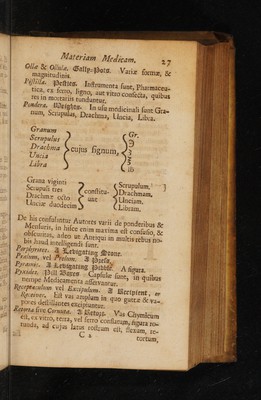 Materiam Medicam. 27
Ollæ & Ollulæ. Gally-Pots. Variæ formæ, &
magnitudinis.
Pistilla. Pestles. Instrumenta sunt, Pharmaceu-
tica, ex ferro, ligno, aut vitro confecta, quibus
res in mortariis tunduntur.
Pondera. Weights. In usu medicinali sunt Gra-
num, Scrupulus, Drachma, Uncia, Libra.
Granum Gr.
Scrupulus ℈
Drachma cujus signum, ʒ
Uncia ℥
Libra ℔
Grana viginti Scrupulum,
Scrupuli tres constitu- Drachmam,
Drachmæ octo unt Unciam,
Unciæ duodecim Libram.
De his consulantur Autores varii de ponderibus &
Mensuris, in hisce enim maxima est confusio, &
obscuritas, adeo ut Antiqui in multis rebus no-
bis haud intelligendi sunt.
Porphyrites. A Levigating Stone.
Prælum, vel Prelum. A Press.
Pyramis. A Levigating A figura.
Pyxides. Pill Boxes. Capsulæ sunt, in quibus
nempe Medicamenta asservantur.
Receptaculum vel Excipulum. A Recipient, or
Receiver. Est vas amplum in quo guttæ & va-
pores destillantes excipiuntur.
Retorta sive Cornuta. A Retort. Vas Chymicum
est, ex vitro, terra, vel ferro constatum, figura ro-
tunda, ad cujus latus rostrum est, flexum, re-
C 2 tortum,